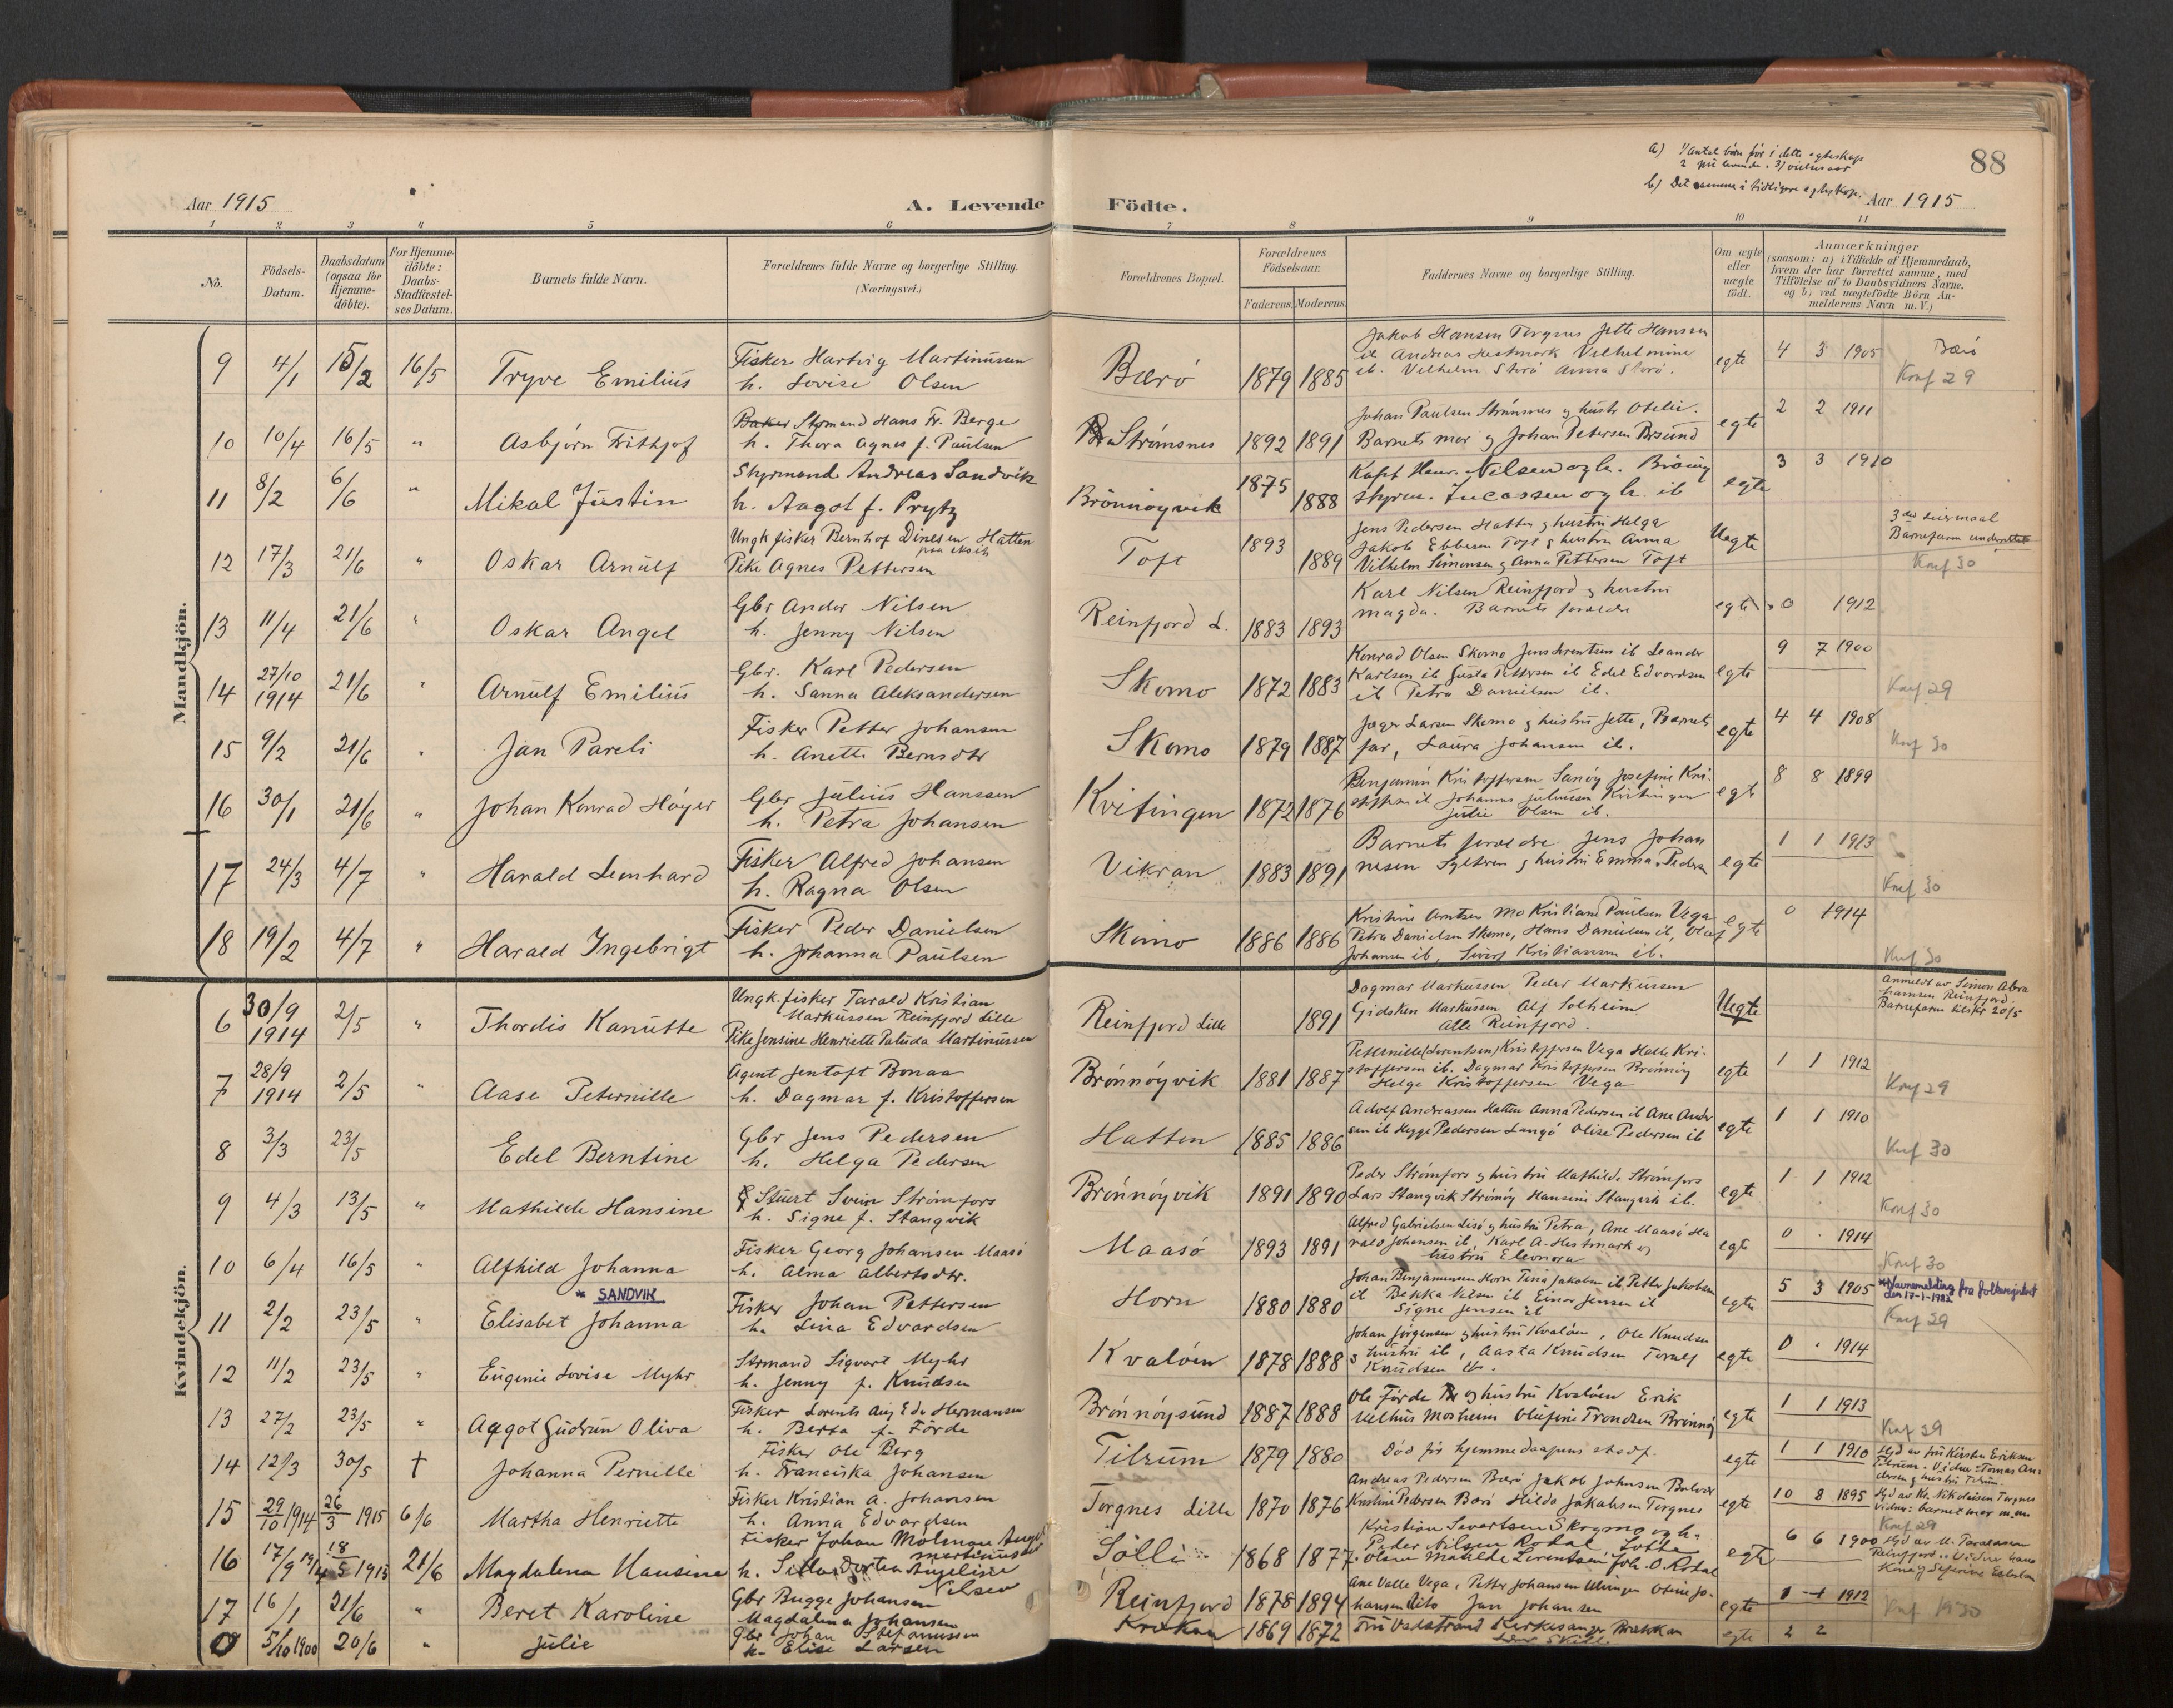 a) 1/ Antal börn før i dette egteskap
2 nu levende. 3) vielsesaar
b) Det samme i tidligere egteskap.
88
Aar 1915
A. Levende Födte.
Aar 1915
1 2 3 4 5 6 7 8 9 10 11
No.
Födsels-Datum.
Daabsdatum (ogsaa for Hjemme-döbte).
For Hjemme-döbte: Daabs-Stadfæstel-ses Datum.
Barnets fulde Navn.
Forældrenes fulde Navne og borgerlige Stilling. (Næringsvei.)
Forældrenes Bopæl.
Forældrenes Födselsaar.
Faderens. Moderens.
Faddernes Navne og borgerlige Stilling.
Om ægte eller uægte födt.
Anmærkninger
(saasom: a) i Tilfælde af Hjemmedaab, hvem der har forrettet samme, med Tilföielse af to Daabsvidners Navne. og b) ved uægtefödte Börn An-melderens Navn m. V.)
Mandkjön.
9 4/1 15/2 16/5 Tryve Emilius
Fisker Hartvig Martinussen
h. Lovise Olsen
Bærö 1879 1885
Jakob Hansen Torgnes Jette Hanssen
ib. Andreas Hestmark Vilhelmine
ib. Vilhelm Anna
egte 4 3 1905 Bærö
Konf 29
10 10/4 16/5 " Asbjørn Fithjof
Styrmand Hans Fr. Berge
h. Thora Agnes f. Paulsen
Strömsnes 1892 1891
Johan Paulsen Strömsnes og hustr Otelie.
Barnets mor og Johan Petersen Brsund
egte 2 2 1911
11 8/2 6/6 " Mikal Justin
Styrmand Andreas Sandvik
h. Aagot f. Prytz
Brönnöyvik 1875 1888
Kapt Henr. Nilsen og h. Brönöy
styrm. Lucassen og h. ib
egte 3 3 1910
12 17/3 21/6 " Oskar Arnulf
Ungk fisker Bernhof Dinesen Hatten
Pike Agnes Pettersen
Toft 1893 1889
Jens Pedersen Hatten og hustru Helga
Jakob Ebbesen Toft og hustru Anna
Vilhelm Simonsen og Anna Pettersen Toft
Uegte
3die leiermaal
Barnefaren underrettet
Konf 30
13 11/4 21/6 " Oskar Angel
Gbr Andor Nilsen
h. Jenny Nilsen
Reinfjord L. 1883 1893
Karl Nilsen Reinfjord og hustru
Magda. Barnets foreldre
egte 0 1912
14 27/10 1914 21/6 " Arnulf Emilius
Gbr. Karl Pedersen
h. Sanna Aleksandersen
Skomo 1872 1883
Konrad Olsen Skomo Jens Lorentsen ib Leander
Karlsen ib Gusta Pettersen ib Edel Edvardsen
ib Petra Danielsen ib.
egte 9 7 1900
Konf 29
15 9/2 21/6 " Jan Pareli
Fisker Petter Johansen
h. Anette Bernsdtr
Skomo 1879 1887
Jæger Larsen Skomo og hustru Jette, Barnets
far, Laura Johansen ib.
egte 4 4 1908
Konf 30
16 30/1 21/6 " Johan Konrad Höyer
Gbr Julius Hanssen
h. Petra Johansen
Kvitingen 1872 1876
Benjamin Kristoffersen Sanöy Josefine Kri-
stoffersen ib Johannes Juliussen Kvitingen
Julie Olsen ib.
egte 8 8 1899
17 24/3 4/7 " Harald Leonhard
Fisker Alfred Johansen
h. Ragna Olsen
Vikran 1883 1891
Barnets foreldre Jens Johan
nesen og hustru Emma
egte 1 1 1913
Konf 30
18 19/2 4/7 " Harald Ingebrigt
Fisker Peder Danielsen
h. Johanna Paulsen
Skomo 1886 1886
Kristine Arntsen Mo Kristiane Paulsen Vega
Petra Danielsen Skomo, Hans Danielsen ib, Olaf
Johansen ib, Sivert Kristiansen ib.
egte 0 1914
Konf 30
Kvindekjön.
6 30/9 1914 2/5 " Thordis Kanutte
Ungk. fisker Tarald Kristian
Markussen Reinfjord Lille
Pike Jensine Henriette Paluda Martinussen
Reinfjord Lille 1891
Dagmar Markussen Peder Markussen
Gidsken Markussen Alf Solheim
Alle Reinfjord.
Uegte
Anmeldt av Simon Abra
hamsen Reinfjord.
Barnefaren tilskr 20/5
7 28/9 1914 2/5 " Aase Peternille
Agent Jentoft Bonaa
h. Dagmar f. Kristoffersen
Brönnöyvik 1881 1887
Peternille (Lorentsen) Kristoffersen Vega Halle Kri-
stoffersen ib. Dagmar Kristoffersen Brönnöy
Helge Kristoffersen Vega
egte 1 1 1912
Konf 29
8 3/3 23/5 Edel Berntine
Gbr Jens Pedersen
h. Helga Pedersen
Hatten 1885 1886
Adolf Andreassen Hatten Anna Pedersen ib Ane Ander
sen ib Hegge Pedersen Langö Olise Pedersen ib
egte 1 1 1910
Konf 30
9 4/3 13/5 " Mathilde Hansine
Stuert Svein Strömfors
h. Signe f. Stangvik
Brönnöyvik 1891 1890
Peder Strömfors og hustru Mathilde Strömfors
Lars Stangvik Strömöy Hansine Stangvik ib.
egte 1 1 1912
Konf 30
10 6/4 16/5 " Alfhild Johanna
Fisker Georg Johansen Maasö
h. Alma Albertsdtr.
Maasö 1893 1891
Alfred Gabrielsen Lisö og hustru Petra, Ane Maasö Ha
rald Johansen ib, Karl A. Hestmark og
hustru Eleonora
egte 0 . 1914
Konf 30
* SANDVIK
11 2/2 23/5 " Elisabet Johanna
Fisker Johan Pettersen
h. Lina Edvardsen
Horn 1880 1880
Johan Benjaminsen Horn Tina Jakobsen ib Petter Jakobsen
ib Bekka Nilsen ib Einar Jensen ib
Signe Jensen ib
egte 5 3 1905
* Navnemelding fra folkeregisteret
den 17-1-1982
Konf 29
12 11/2 23/5 " Eugenie Lovise Myhr
Strmand Sigvart Myhr
h. Jenny f. Knudsen
Kvalöen 1878 1888
Johan Jörgensen og hustru Kvalöen, Ole Knudsen
og hustru ib, Aasta Knudsen Toralf
Knudsen ib.
egte 0 . 1914
13 27/2 23/5 " Aagot Gudrun Oliva
Fisker Lorents Aug Edv Hermansen
h. Berta f. Förde
Brönnöysund 1887 1888
Ole Förde og hustru Kvalöen Erik
Melhus Mosheim Olufine Trondsen Brönnöy
egte 1 1 1913
Konf 29
14 12/3 30/5 † Johanna Pernille
Fisker Ole Berg
h. Franciska Johansen
Tilrum 1879 1880
Död för hjemmedaapens stadf.
egte 1 1 1910
Hjd av fru Kirsten Eriksen
Tilrum. Vidner: Tomas An-
dersen og hustru Tilrum.
15 29/10 1914 26/3 1915 6/6 Martha Henriette
Fisker Kristian A. Johansen
h. Anna Edvardsen
Torgnes Lille 1870 1876
Andreas Pedersen Bærö Jakob Johnsen
Kristine Pedersen Bærö Hilda Jakobsen Torgnes
egte 10 8 1895
Hjd av Kr. Nikolaisen Torgnes
Vidner: barnets mor m.m.
Konf 29
16 17/9 1914 18/5 1915 21/6 Magdalena Hansine
Fisker Johan Molman Angel
Martinussen
h. Dortea Angeline
Nilsen
Sölli 1868 1877
Kristian Sevartsen Skogmo og h.
Peder Nilsen Rodal
Olsen Mahlde Lorentsen Joh. O. Rodal
egte 6 6 1900
Hjd av M.
Reinfjord. Vidner hans
kone og Seferine
17 16/1 21/6 " Beret Karoline
Gbr Bugge Johansen
Magdalena Johansen
Reinfjord 1878 1894
Ane Valle Vega, Petter Johansen Ulvingen Otine Jo-
hansen dito Jan Johansen
egte 1 1 1912
Konf 1930
0 5/10 1900 20/6 " Julie
Gbr Johan Stefanussen
h. Elise Larsen
Krokan 1869 1872
Fru Vadstrand Kirkesanger
egte 2 2